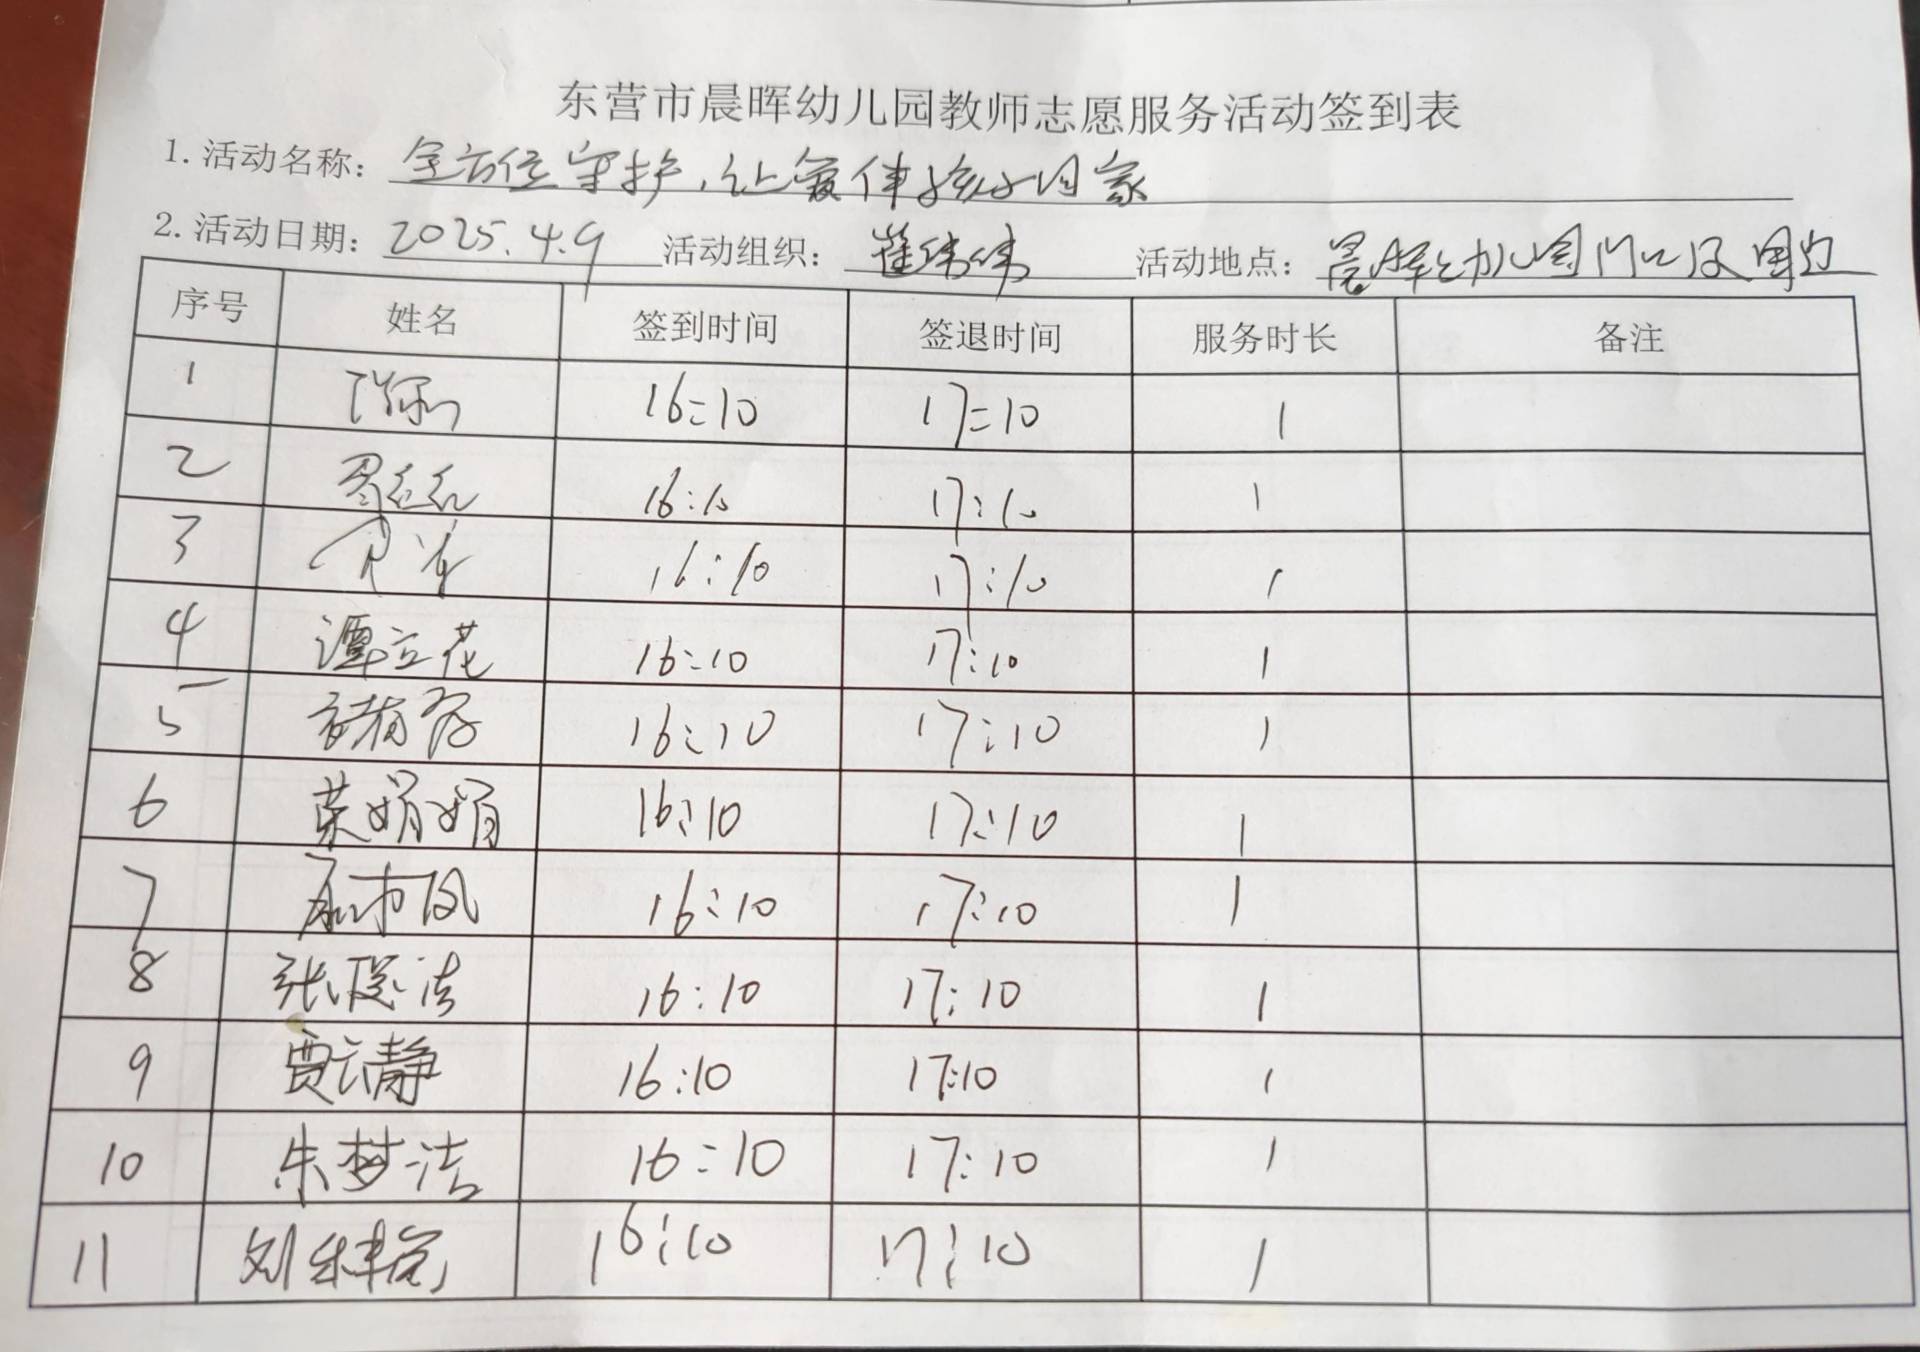 东营市晨晖幼儿园教师志愿服务活动签到表
1. 活动名称: 全方位守护,让爱伴孩子回家
2. 活动日期: 2025.4.9 活动组织: 崔伟伟 活动地点: 晨晖幼儿园门口及周边
序号 姓名 签到时间 签退时间 服务时长 备注
1 16:10 17:10 1
2 16:10 17:10 1
3 16:10 17:10 1
4 谭立花 16:10 17:10 1
5 16:10 17:10 1
6 荣娟娟 16:10 17:10 1
7 16:10 17:10 1
8 张 洁 16:10 17:10 1
9 贾云静 16:10 17:10 1
10 朱梦洁 16:10 17:10 1
11 刘 16:10 17:10 1